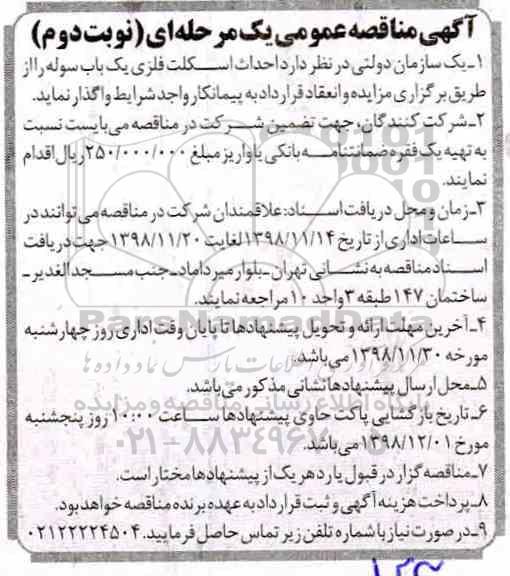 آگهی مناقصه عمومی یک مرحله‌ای (نوبت دوم)
۱ـ یک سازمان دولتی در نظر دارد احداث اسکلت فلزی یک باب سوله را از
طریق برگزاری مزایده و انعقاد قرارداد به پیمانکار واجد شرایط واگذار نماید.
۲ـ شرکت کنندگان، جهت تضمین شرکت در مناقصه می‌بایست نسبت
به تهیه یک فقره ضمانتنامه بانکی یا واریز مبلغ ۲۵۰/۰۰۰/۰۰۰ ریال اقدام
نمایند.
۳ـ زمان و محل دریافت اسناد: علاقمندان شرکت در مناقصه می‌توانند در
ساعات اداری از تاریخ ۱۳۹۸/۱۱/۱۴ لغایت ۱۳۹۸/۱۱/۲۰ جهت دریافت
اسناد مناقصه به نشانی تهران ـ بلوار میرداماد ـ جنب مسجد الغدیر ـ
ساختمان ۱۴۷ طبقه ۳ واحد ۱۰ مراجعه نمایند.
۴ـ آخرین مهلت ارائه و تحویل پیشنهادها تا پایان وقت اداری روز چهارشنبه
مورخه ۱۳۹۸/۱۱/۳۰ می‌باشد.
۵ـ محل ارسال پیشنهادها نشانی مذکور می‌باشد.
۶ـ تاریخ بازگشایی پاکت حاوی پیشنهادها ساعت ۱۰:۰۰ روز پنجشنبه
مورخ ۱۳۹۸/۱۲/۰۱ می‌باشد.
۷ـ مناقصه گزار در قبول یا رد هر یک از پیشنهادها مختار است.
۸ـ پرداخت هزینه آگهی و ثبت قرارداد به عهده برنده مناقصه خواهد بود.
۹ـ در صورت نیاز با شماره تلفن زیر تماس حاصل فرمایید. ۰۲۱۲۲۲۲۴۵۰۴
ParsNamadData
۰۲۱-۸۸۳۴۹۶۷۰